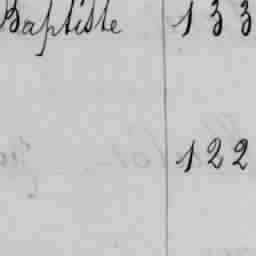 Baptiste 133
122